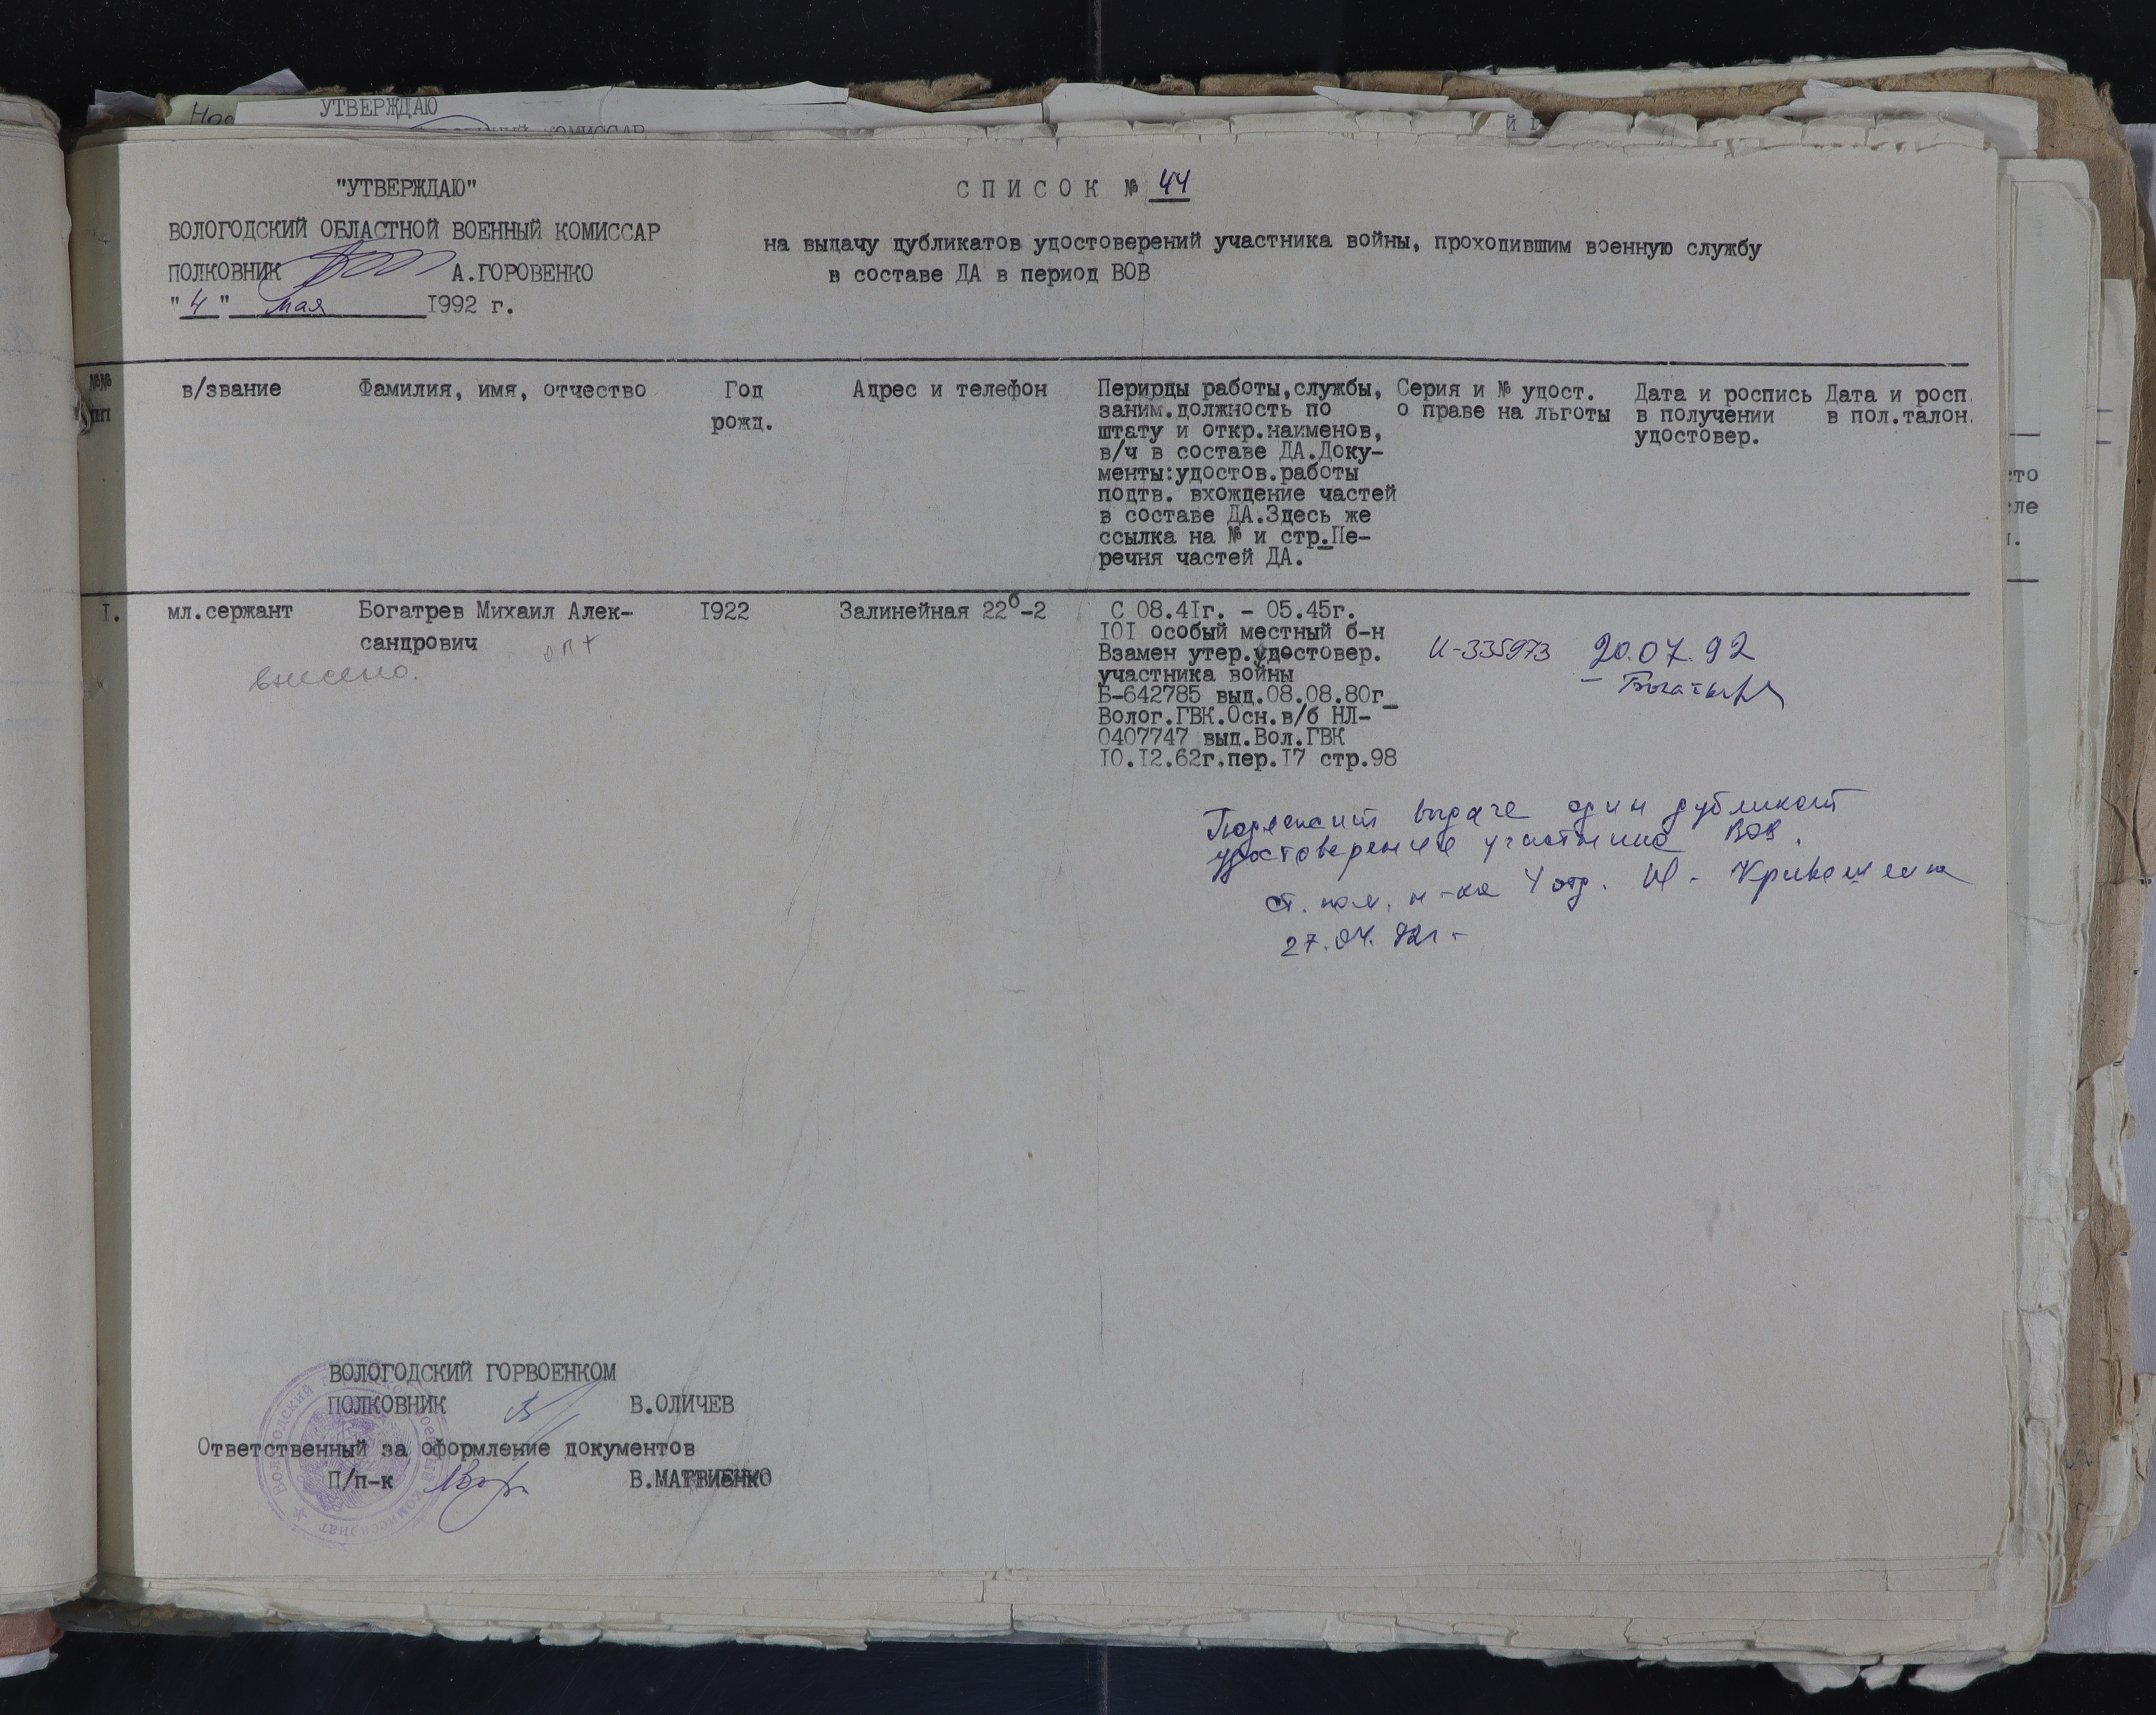 УТВЕРЖДАЮ
"УТВЕРЖДАЮ"
ВОЛОГОДСКИЙ ОБЛАСТНОЙ ВОЕННЫЙ КОМИССАР
ПОЛКОВНИК А.ГОРОВЕНКО
"4" мая 1992 г.
СПИСОК № 44
на выдачу дубликатов удостоверений участника войны, проходившим военную службу
в составе ДА в период ВОВ
№№
пп
в/звание
Фамилия, имя, отчество
Год
рожд.
Адрес и телефон
Перирды работы,службы,
заним.должность по
штату и откр.наименов,
в/ч в составе ДА.Доку-
менты:удостов.работы
подтв. вхождение частей
в составе ДА.Здесь же
ссылка на № и стр.Пе-
речня частей ДА.
Серия и № удост.
о праве на льготы
Дата и роспись
в получении
удостовер.
Дата и росп.
в пол.талон.
I.
мл.сержант
Богатрев Михаил Алек-
сандрович
опт
внесено.
I922
Залинейная 22б-2
С 08.4Iг. - 05.45г.
IOI особый местный б-н
Взамен утер.удостовер.
участника войны
Б-642785 выд.08.08.80г
Волог.ГВК.Осн.в/б НЛ-
0407747 выд.Вол.ГВК
I0.I2.62г.пер.I7 стр.98
И-335973
20.07.92
Подлежит выдаче один дубликат
удостоверение участника ВОВ.
ст. пом. н-ка 4 отд.
27.04.92г.
ВОЛОГОДСКИЙ ГОРВОЕНКОМ
ПОЛКОВНИК В.ОЛИЧЕВ
Ответственный за оформление документов
П/п-к В.МАТВИЕНКО